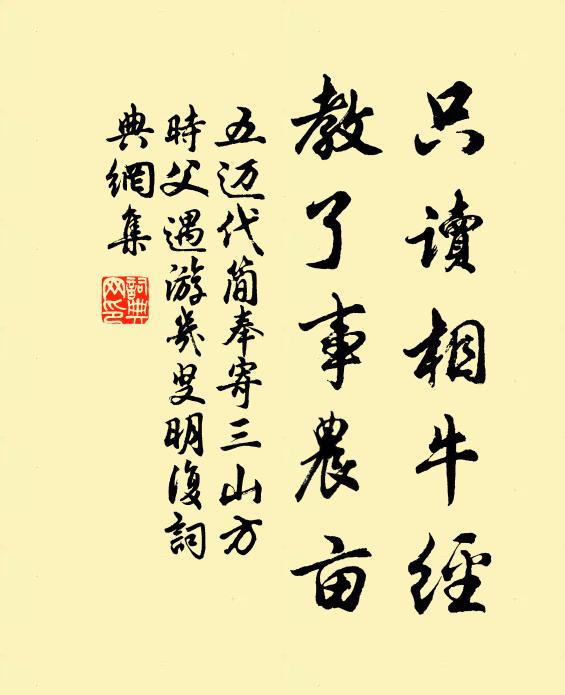 只讀相牛經
教了事農亩
五迈代简奉寄三山方
時父遇游幾叟明復詞
典網集
詞典網印